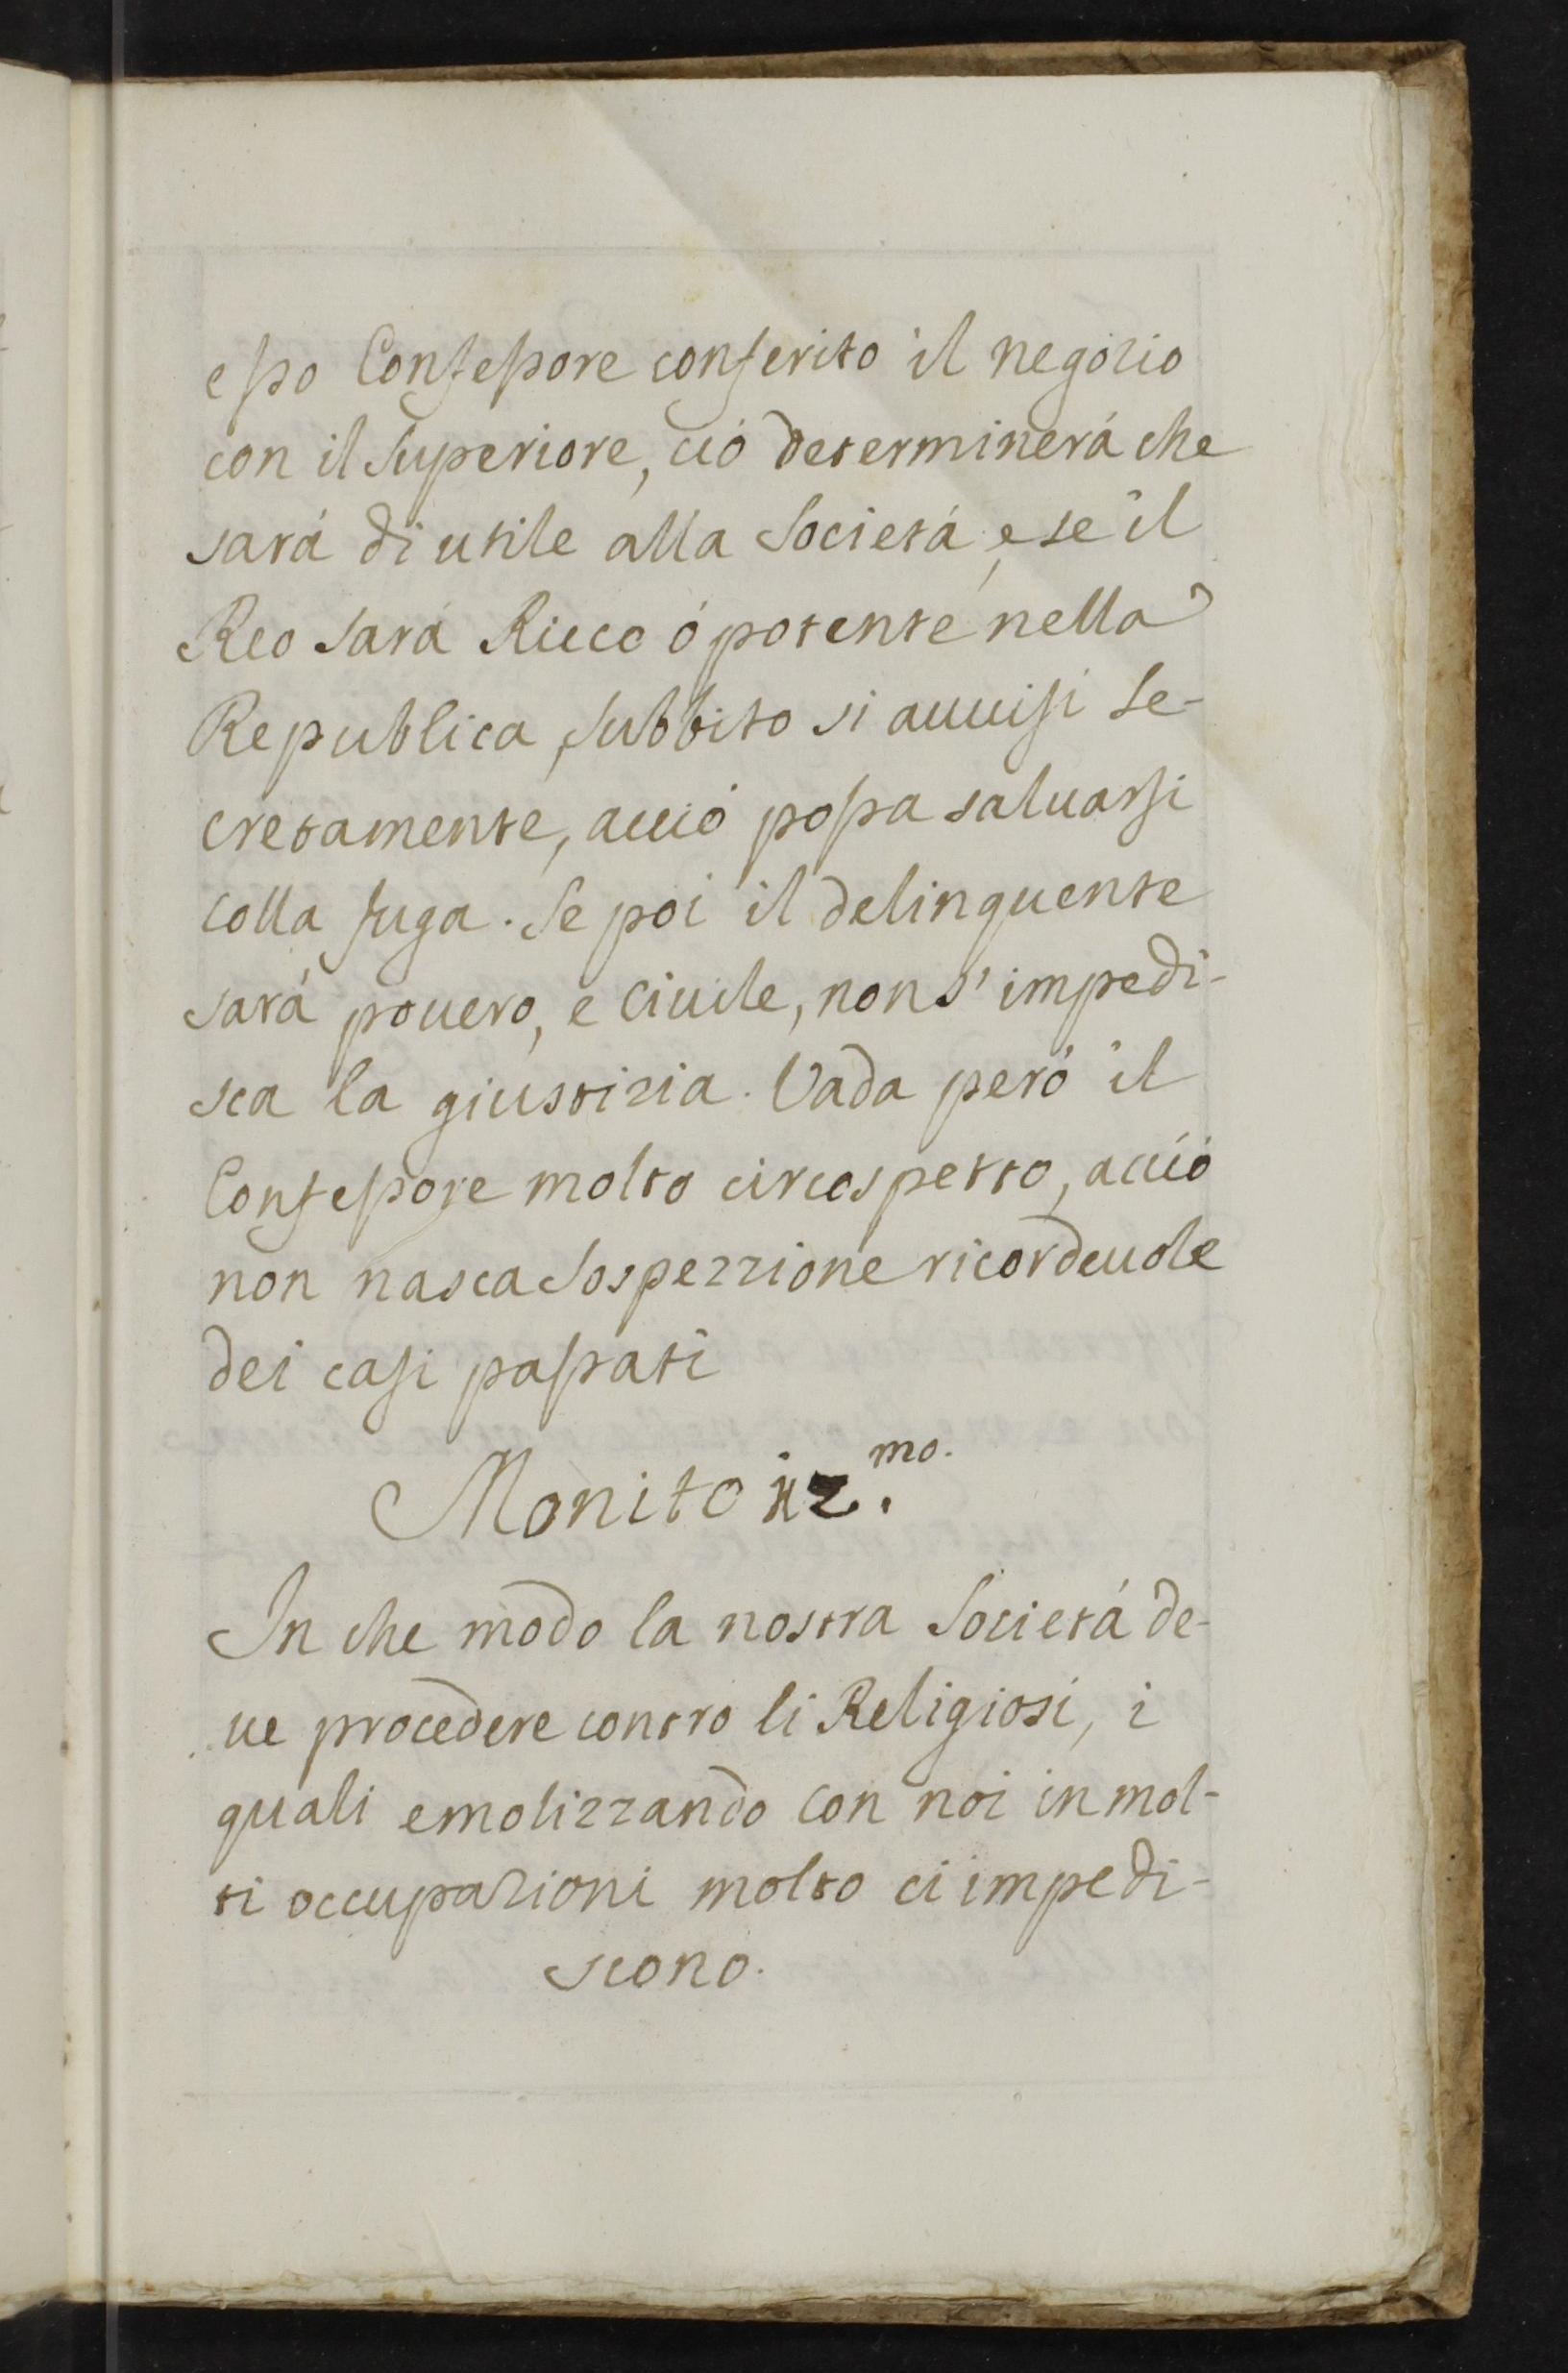 esso Confessore conferito il negozio
con il Superiore, ció determinerá che
sará di utile alla Societá, e se il
Reo sará Ricco ó potente nella
Republica, subbito si auuisi se-
cretamente, acció possa saluarsi
colla fuga. Se poi il delinquente
sará pouero, e Ciuile, non s' impedi-
sca la giustizia. Vada peró il
Confessore molto circospetto, acció
non nasca Sospezzione ricordeuole
dei casi passati
Monito 12.mo.
In che modo la nostra Societá de-
ue procedere contro li Religiosi, i
quali emolizzando con noi in mol-
ti occupazioni molto ci impedi-
scono.